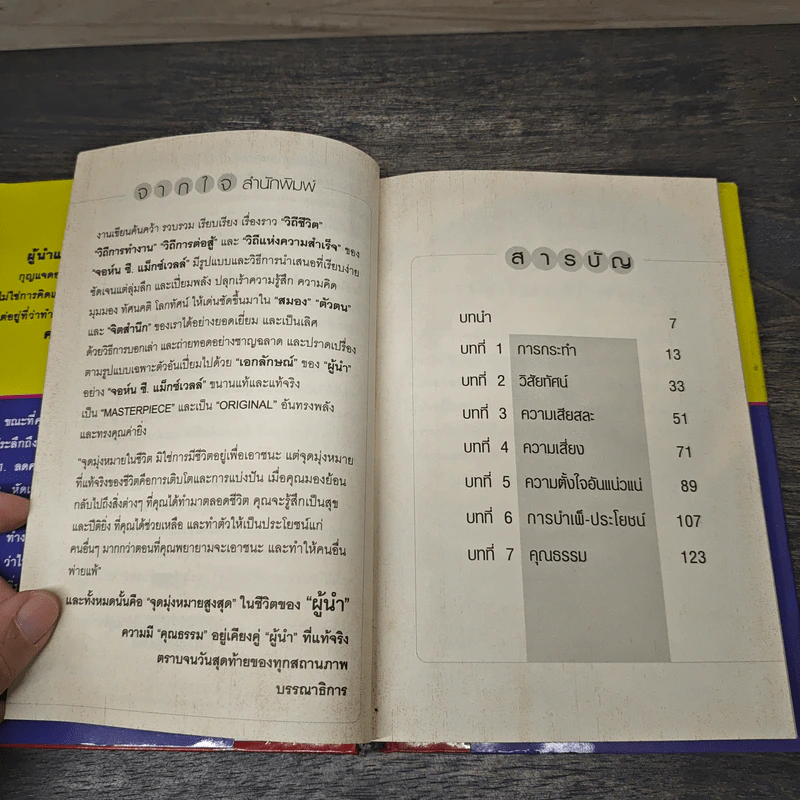 จากใจ สำนักพิมพ์
งานเขียนค้นคว้า รวบรวม เรียบเรียง เรื่องราว "วิถีชีวิต"
"วิถีการทำงาน" "วิถีการต่อสู้" และ "วิถีแห่งความสำเร็จ" ของ
"จอห์น ซี. แม็กซ์เวลล์" มีรูปแบบและวิธีการนำเสนอที่เรียบง่าย
ชัดเจนแต่ลุ่มลึก และเปี่ยมพลัง ปลุกเร้าความรู้สึก ความคิด
มุมมอง ทัศนคติ โลกทัศน์ ให้เด่นชัดขึ้นมาใน "สมอง" "ตัวตน"
และ "จิตสำนึก" ของเราได้อย่างยอดเยี่ยม และเป็นเลิศ
ด้วยวิธีการบอกเล่า และถ่ายทอดอย่างชาญฉลาด และปราดเปรื่อง
ตามรูปแบบเฉพาะตัวอันเปี่ยมไปด้วย "เอกลักษณ์" ของ "ผู้นำ"
อย่าง "จอห์น ซี. แม็กซ์เวลล์" ขนานแท้และแท้จริง
เป็น "MASTERPIECE" และเป็น "ORIGINAL" อันทรงพลัง
และทรงคุณค่ายิ่ง
"จุดมุ่งหมายในชีวิต มิใช่การมีชีวิตอยู่เพื่อเอาชนะ แต่จุดมุ่งหมาย
ที่แท้จริงของชีวิตคือการเติบโตและการแบ่งปัน เมื่อคุณมองย้อน
กลับไปถึงสิ่งต่างๆ ที่คุณได้ทำมาตลอดชีวิต คุณจะรู้สึกเป็นสุข
และปีติยิ่ง ที่คุณได้ช่วยเหลือ และทำตัวให้เป็นประโยชน์แก่
คนอื่นๆ มากกว่าตอนที่คุณพยายามจะเอาชนะ และทำให้คนอื่น
พ่ายแพ้"
และทั้งหมดนั้นคือ "จุดมุ่งหมายสูงสุด" ในชีวิตของ "ผู้นำ"
ความมี "คุณธรรม" อยู่เคียงคู่ "ผู้นำ" ที่แท้จริง
ตราบจนวันสุดท้ายของทุกสถานภาพ
บรรณาธิการ
สารบัญ
บทนำ 7
บทที่ 1 การกระทำ 13
บทที่ 2 วิสัยทัศน์ 33
บทที่ 3 ความเสียสละ 51
บทที่ 4 ความเสี่ยง 71
บทที่ 5 ความตั้งใจอันแน่วแน่ 89
บทที่ 6 การบำเพ็-ประโยชน์ 107
บทที่ 7 คุณธรรม 123